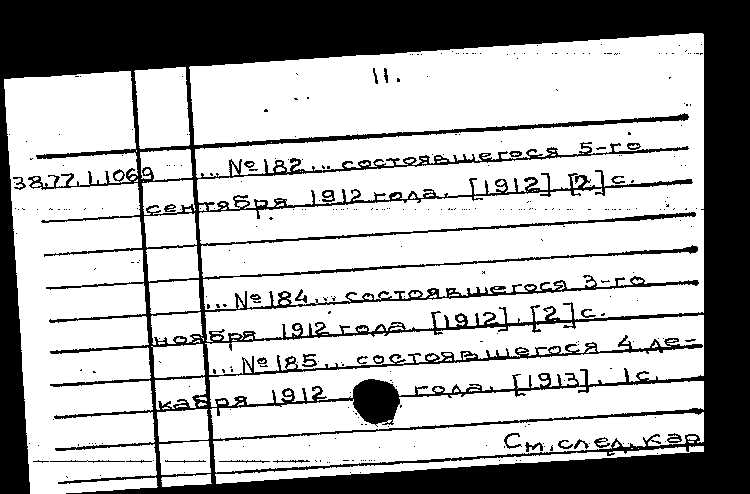 11.
38.77.1.1069 ... № 182 ... состоявшегося 5-го
сентября 1912 года. [1912] [2] с.
... № 184 ... состоявшегося 3-го
ноября 1912 года. [1912]. [2] с.
... № 185 ... состоявшегося 4 де-
кабря 1912 года. [1913]. 1 с.
См. след. кар